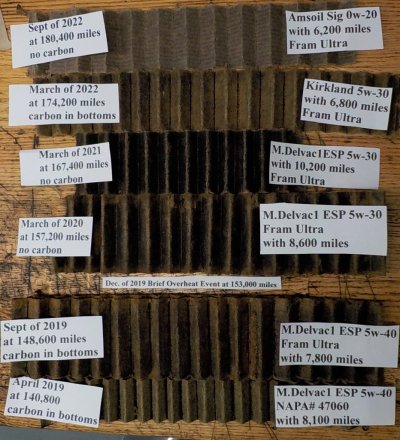 Sept of 2022
at 180,400 miles
no carbon
Amsoil Sig 0w-20
with 6,200 miles
Fram Ultra
March of 2022
at 174,200 miles
carbon in bottoms
Kirkland 5w-30
with 6,800 miles
Fram Ultra
March of 2021
at 167,400 miles
no carbon
M.Delvac1ESP 5w-30
with 10,200 miles
Fram Ultra
March of 2020
at 157,200 miles
no carbon
M.Delvac1 ESP 5w-30
Fram Ultra
with 8,600 miles
Dec. of 2019 Brief Overheat Event at 153,000 miles
Sept of 2019
at 148,600 miles
carbon in bottoms
M.Delvac1 ESP 5w-40
Fram Ultra
with 7,800 miles
April 2019
at 140,800
carbon in bottoms
M.Delvac1 ESP 5w-40
NAPA# 47060
with 8,100 miles